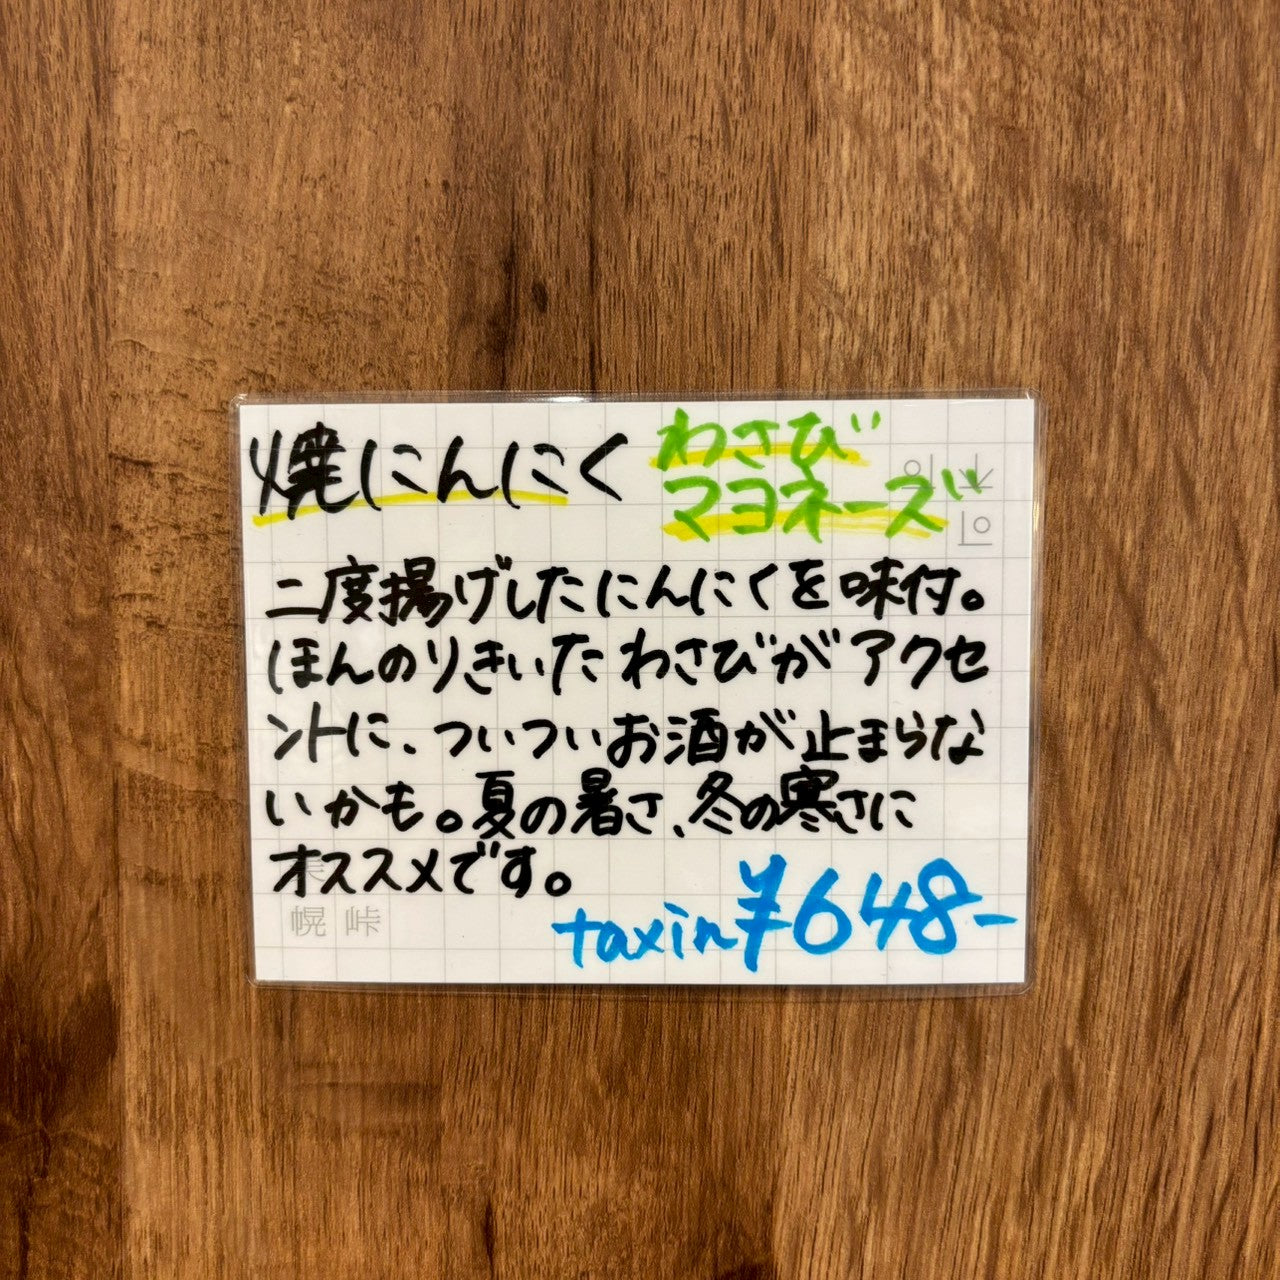 焼にんにく
わさび
マヨネーズ
二度揚げしたにんにくを味付。
ほんのりきいたわさびがアクセ
ントに、ついついお酒が止まらな
いかも。夏の暑さ、冬の寒さに
オススメです。
taxin¥648-
幌 峠